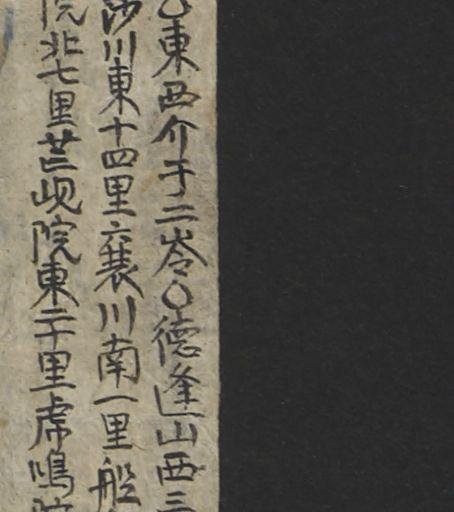 〇東西介于二岺〇德逢山西三
沙川東十四里襄川南一里船
院北七里芒峴院東二十里虎鳴院